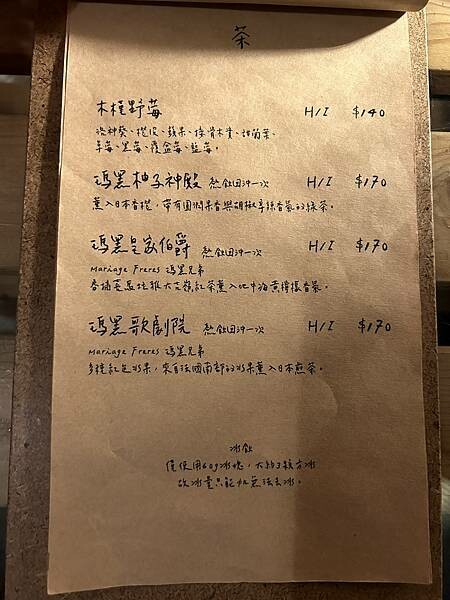 茶
木槿野莓 H/I $140
洛神葵、橙皮、蘋果、接骨木果、甜菊葉、
草莓、黑莓、覆盆莓、藍莓。
瑪黑柚子神殿 熱飲回沖一次 H/I $170
薰入日本香橙,帶有圓潤果香與胡椒辛辣香氣的綠茶。
瑪黑皇家伯爵 熱飲回沖一次 H/I $170
Mariage Freres 瑪黑兄弟
大吉嶺紅茶薰入佛手油黃檸檬香氣。
瑪黑歌劇院 熱飲回沖一次 H/I $170
Mariage Freres 瑪黑兄弟
多種紅色水果,來自法國南部的水果薰入日本煎茶。
冰飲
僅使用60g冰塊,大約3顆方冰
故冰量只能加無法去冰。